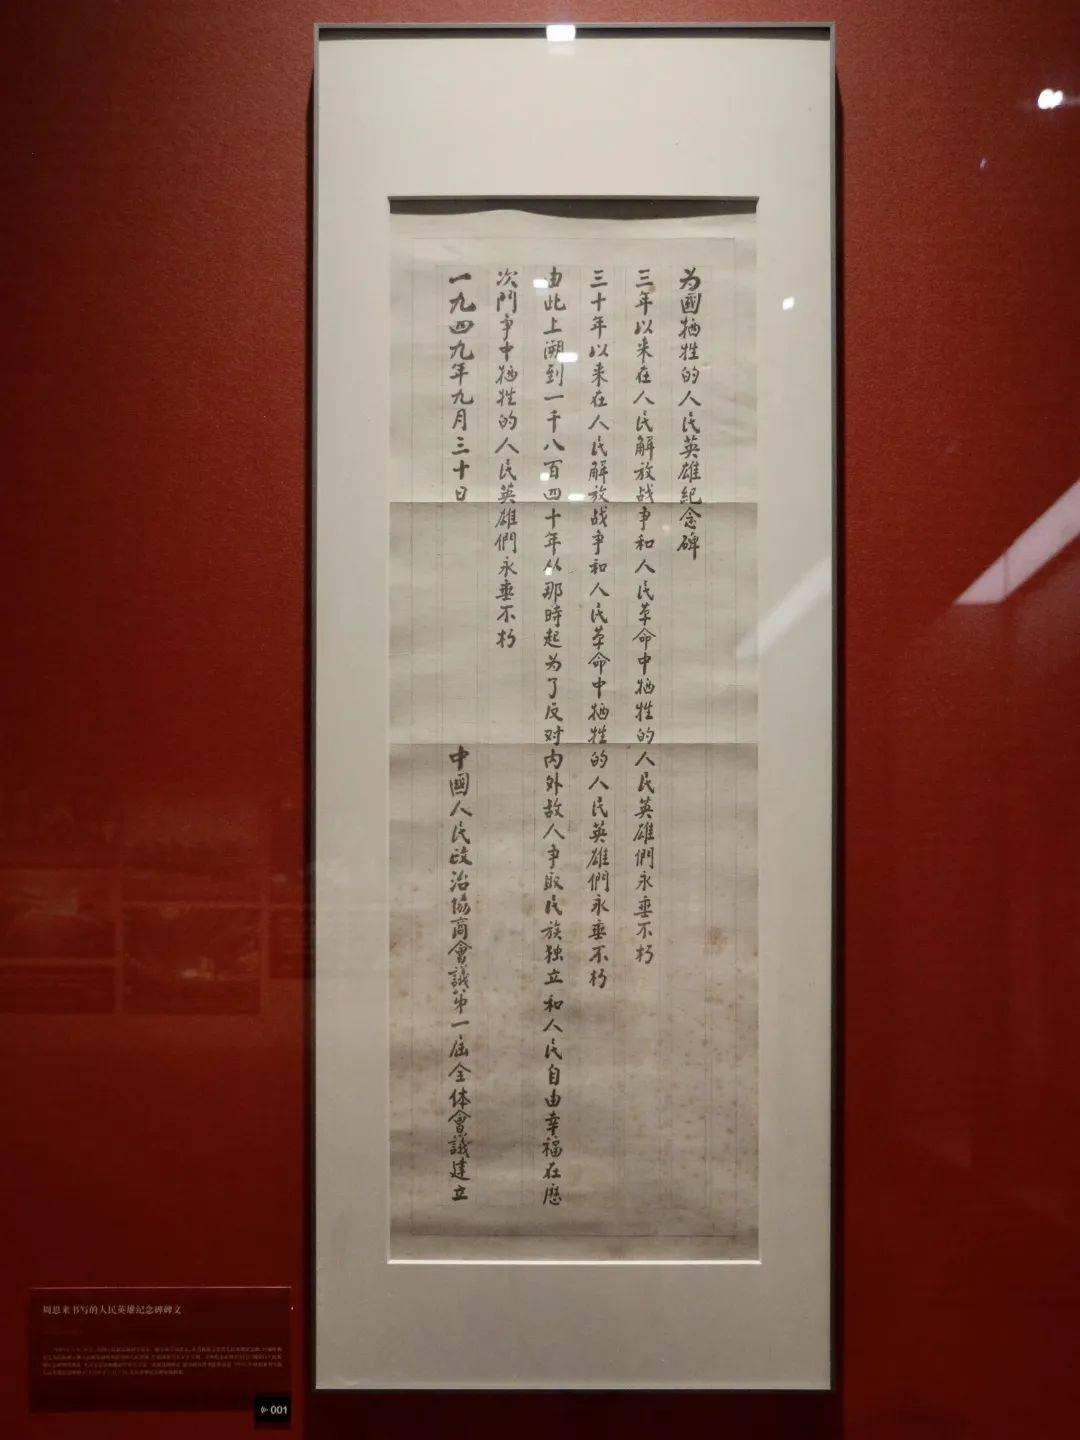 为國牺牲的人民英雄紀念碑
三年以来在人民解放战争和人民革命中牺牲的人民英雄們永垂不朽
三十年以来在人民解放战争和人民革命中牺牲的人民英雄們永垂不朽
由此上溯到一千八百四十年从那時起为了反对内外敌人争取民族独立和人民自由幸福在歷
次鬥争中牺牲的人民英雄們永垂不朽
一九四九年九月三十日 中國人民政治協商會議第一届全体會議建立
周恩来书写的人民英雄纪念碑碑文
001